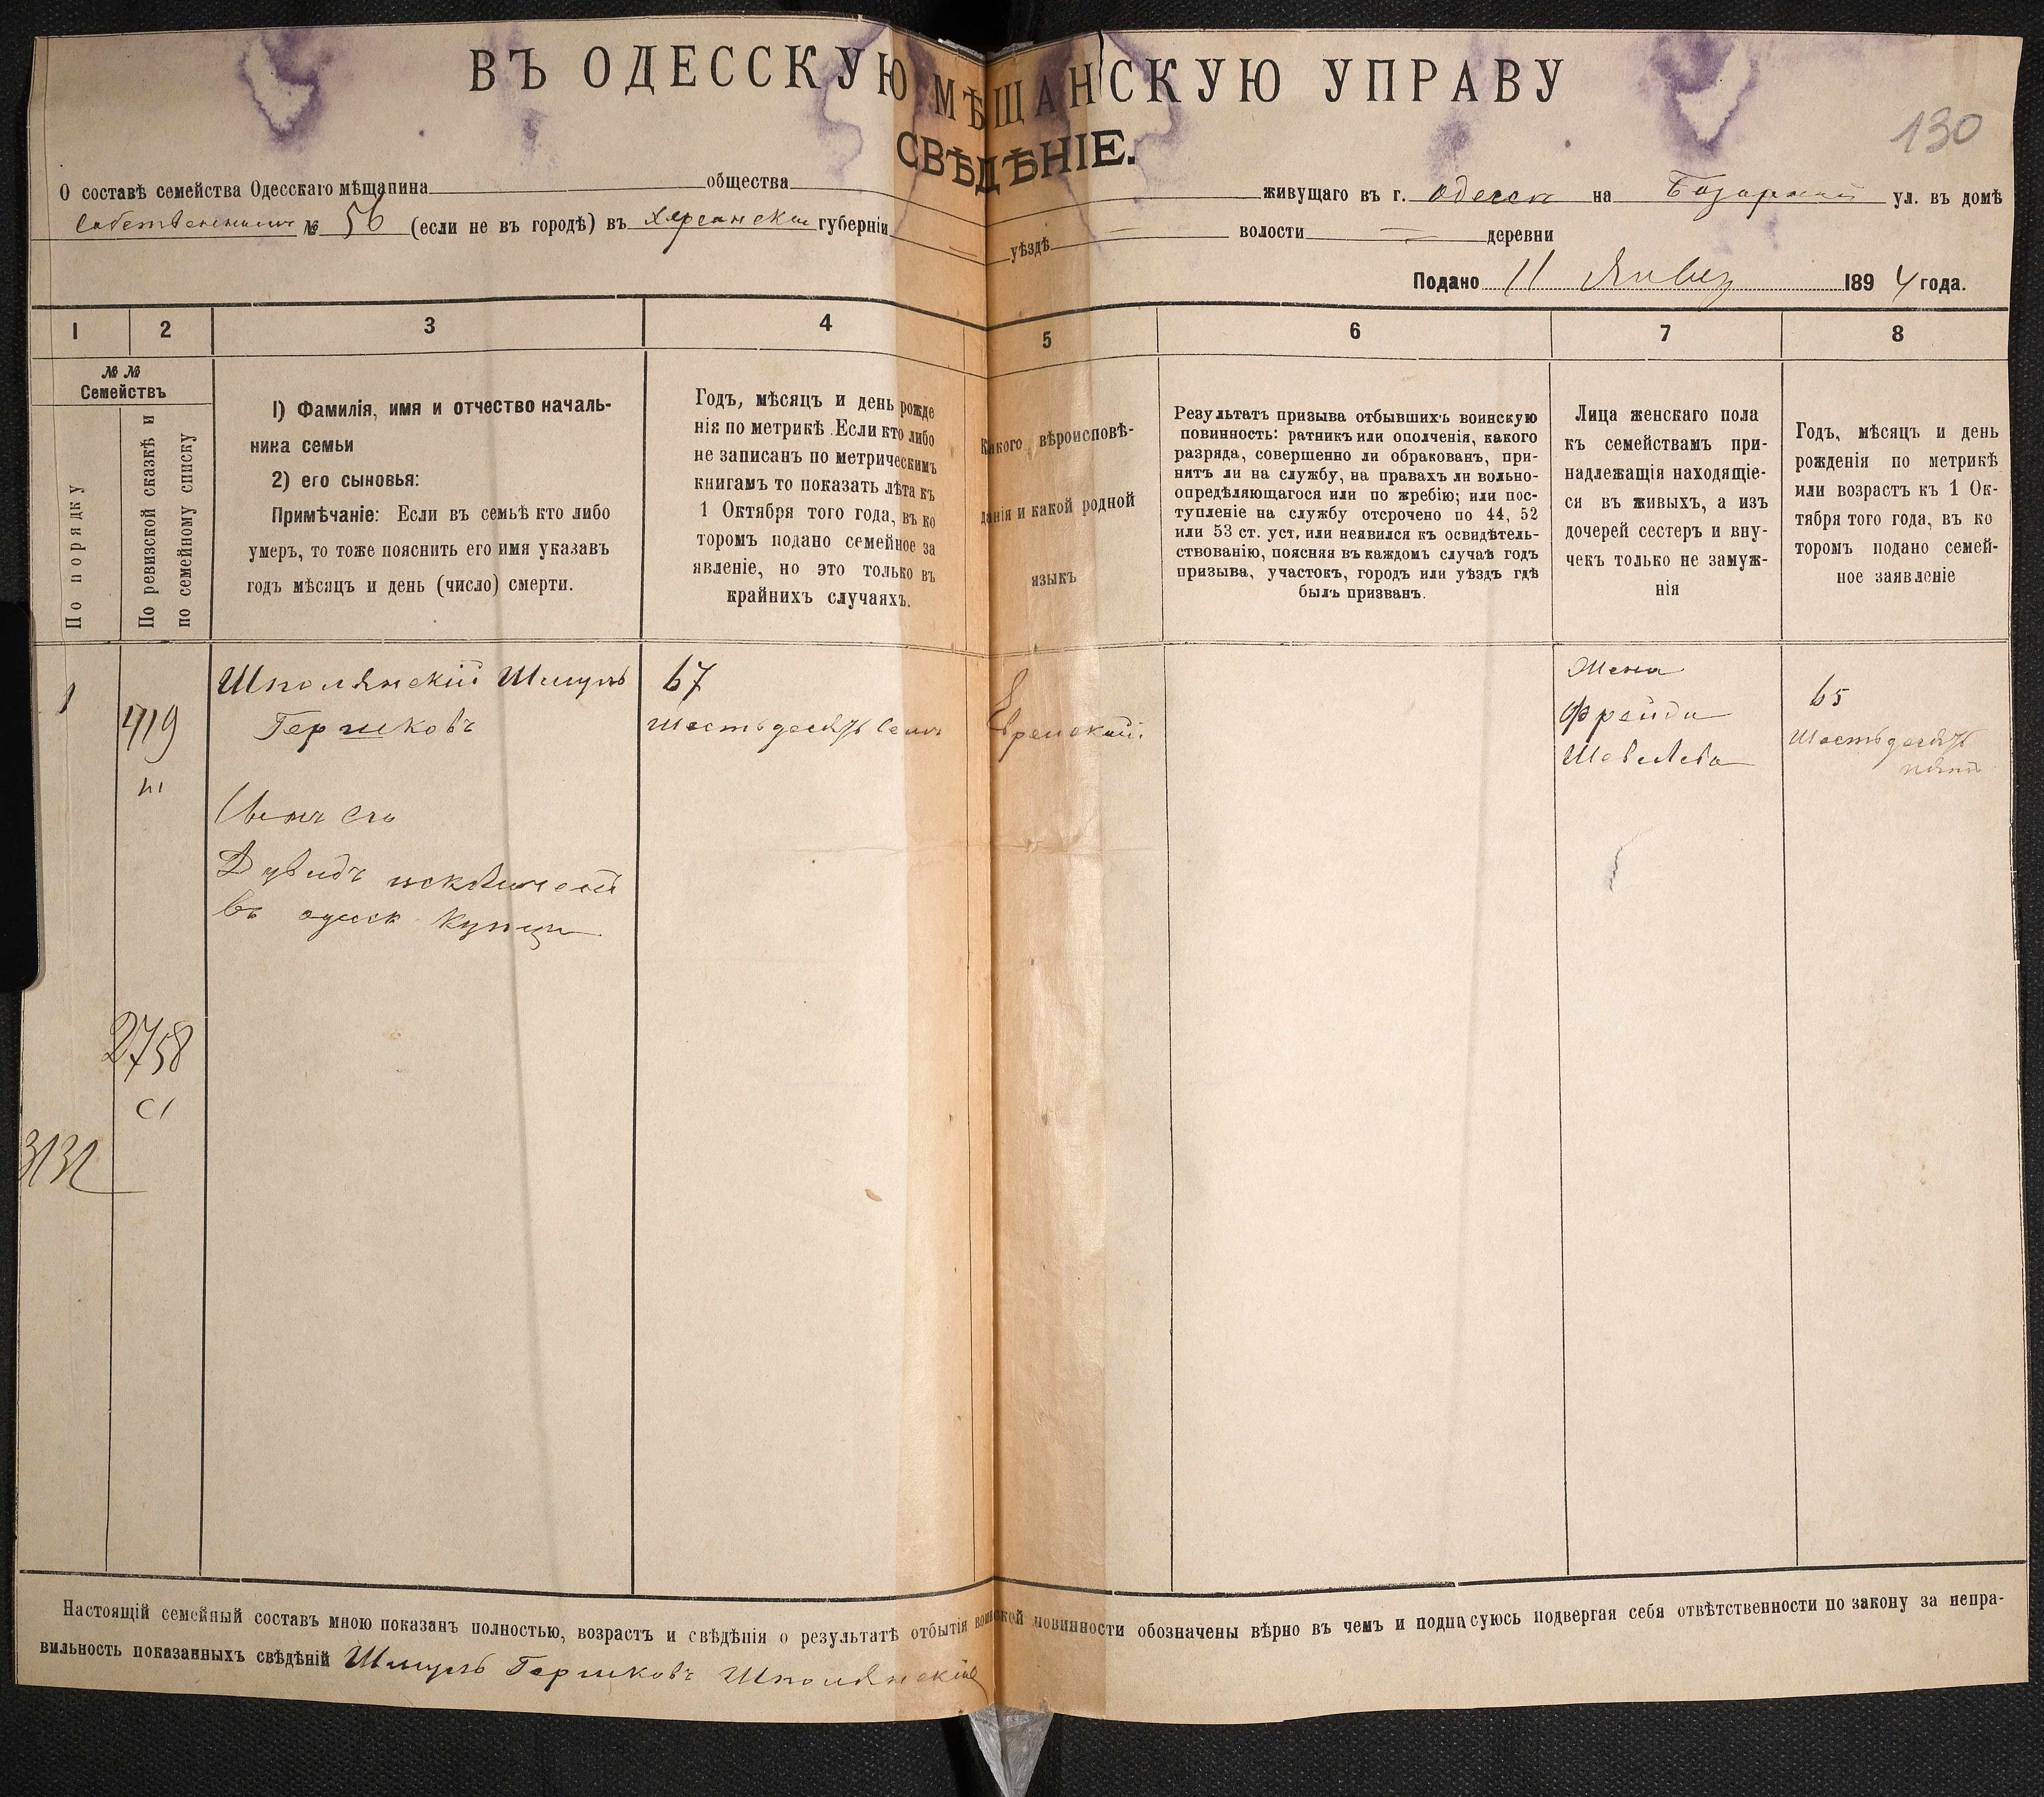 ВЪ ОДЕССКУЮ МѢЩАНСКУЮ УПРАВУ
130
СВѢДѢНІЕ.
О составѣ семейства Одесскаго мѣщанина общества живущаго въ г. Одессѣ на Базарной ул. въ домѣ
№ 56 (если не въ городѣ) въ Херсонской губерніи уѣздѣ волости деревни
Подано 11 Январ 1894 года.
1 2 3 4 5 6 7 8
№ №
Семействъ
По порядку
По ревизской сказкѣ и
по семейному списку
1) Фамилія, имя и отчество началь-
ника семьи
2) его сыновья:
Примѣчаніе: Если въ семьѣ кто либо
умеръ, то тоже пояснить его имя указавъ
годъ мѣсяцъ и день (число) смерти.
Годъ, мѣсяцъ и день рожде
нія по метрикѣ. Если кто либо
не записанъ по метрическимъ
книгамъ то показать лѣта къ
1 Октября того года, въ ко
торомъ подано семейное за
явленіе, но это только въ
крайнихъ случаяхъ.
Какого вѣроисповѣ-
данія и какой родной
языкъ
Результатъ призыва отбывшихъ воинскую
повинность: ратникъ или ополченія, какого
разряда, совершенно ли обракованъ, при-
нятъ ли на службу, на правахъ ли вольно-
опредѣляющагося или по жребію; или пос-
тупленіе на службу отсрочено по 44, 52
или 53 ст. уст. или неявился къ освидѣтель-
ствованію, поясняя въ каждомъ случаѣ годъ
призыва, участокъ, городъ или уѣздъ гдѣ
былъ призванъ.
Лица женскаго пола
къ семействамъ при-
надлежащія находящіе-
ся въ живыхъ, а изъ
дочерей сестеръ и вну-
чекъ только не замуж-
нія
Годъ, мѣсяцъ и день
рожденія по метрикѣ
или возрастъ къ 1 Ок-
тября того года, въ ко
торомъ подано семей-
ное заявленіе
1
719
Шполянскій Шмуль
Гершковъ
67
Шестьдесятъ семь
Еврейский
Жена
Фрейда
Шевелева
65
Шестьдесятъ
пять
Сынъ его
Дувидъ
въ одесск купцы
2758
3132
Настоящій семейный составъ мною показанъ полностью, возрастъ и свѣдѣнія о результатѣ отбытія воинской повинности обозначены вѣрно въ чемъ и подписуюсь подвергая себя отвѣтственности по закону за непра-
вильность показанныхъ свѣдѣній Шмуль Гершковъ Шполянскій